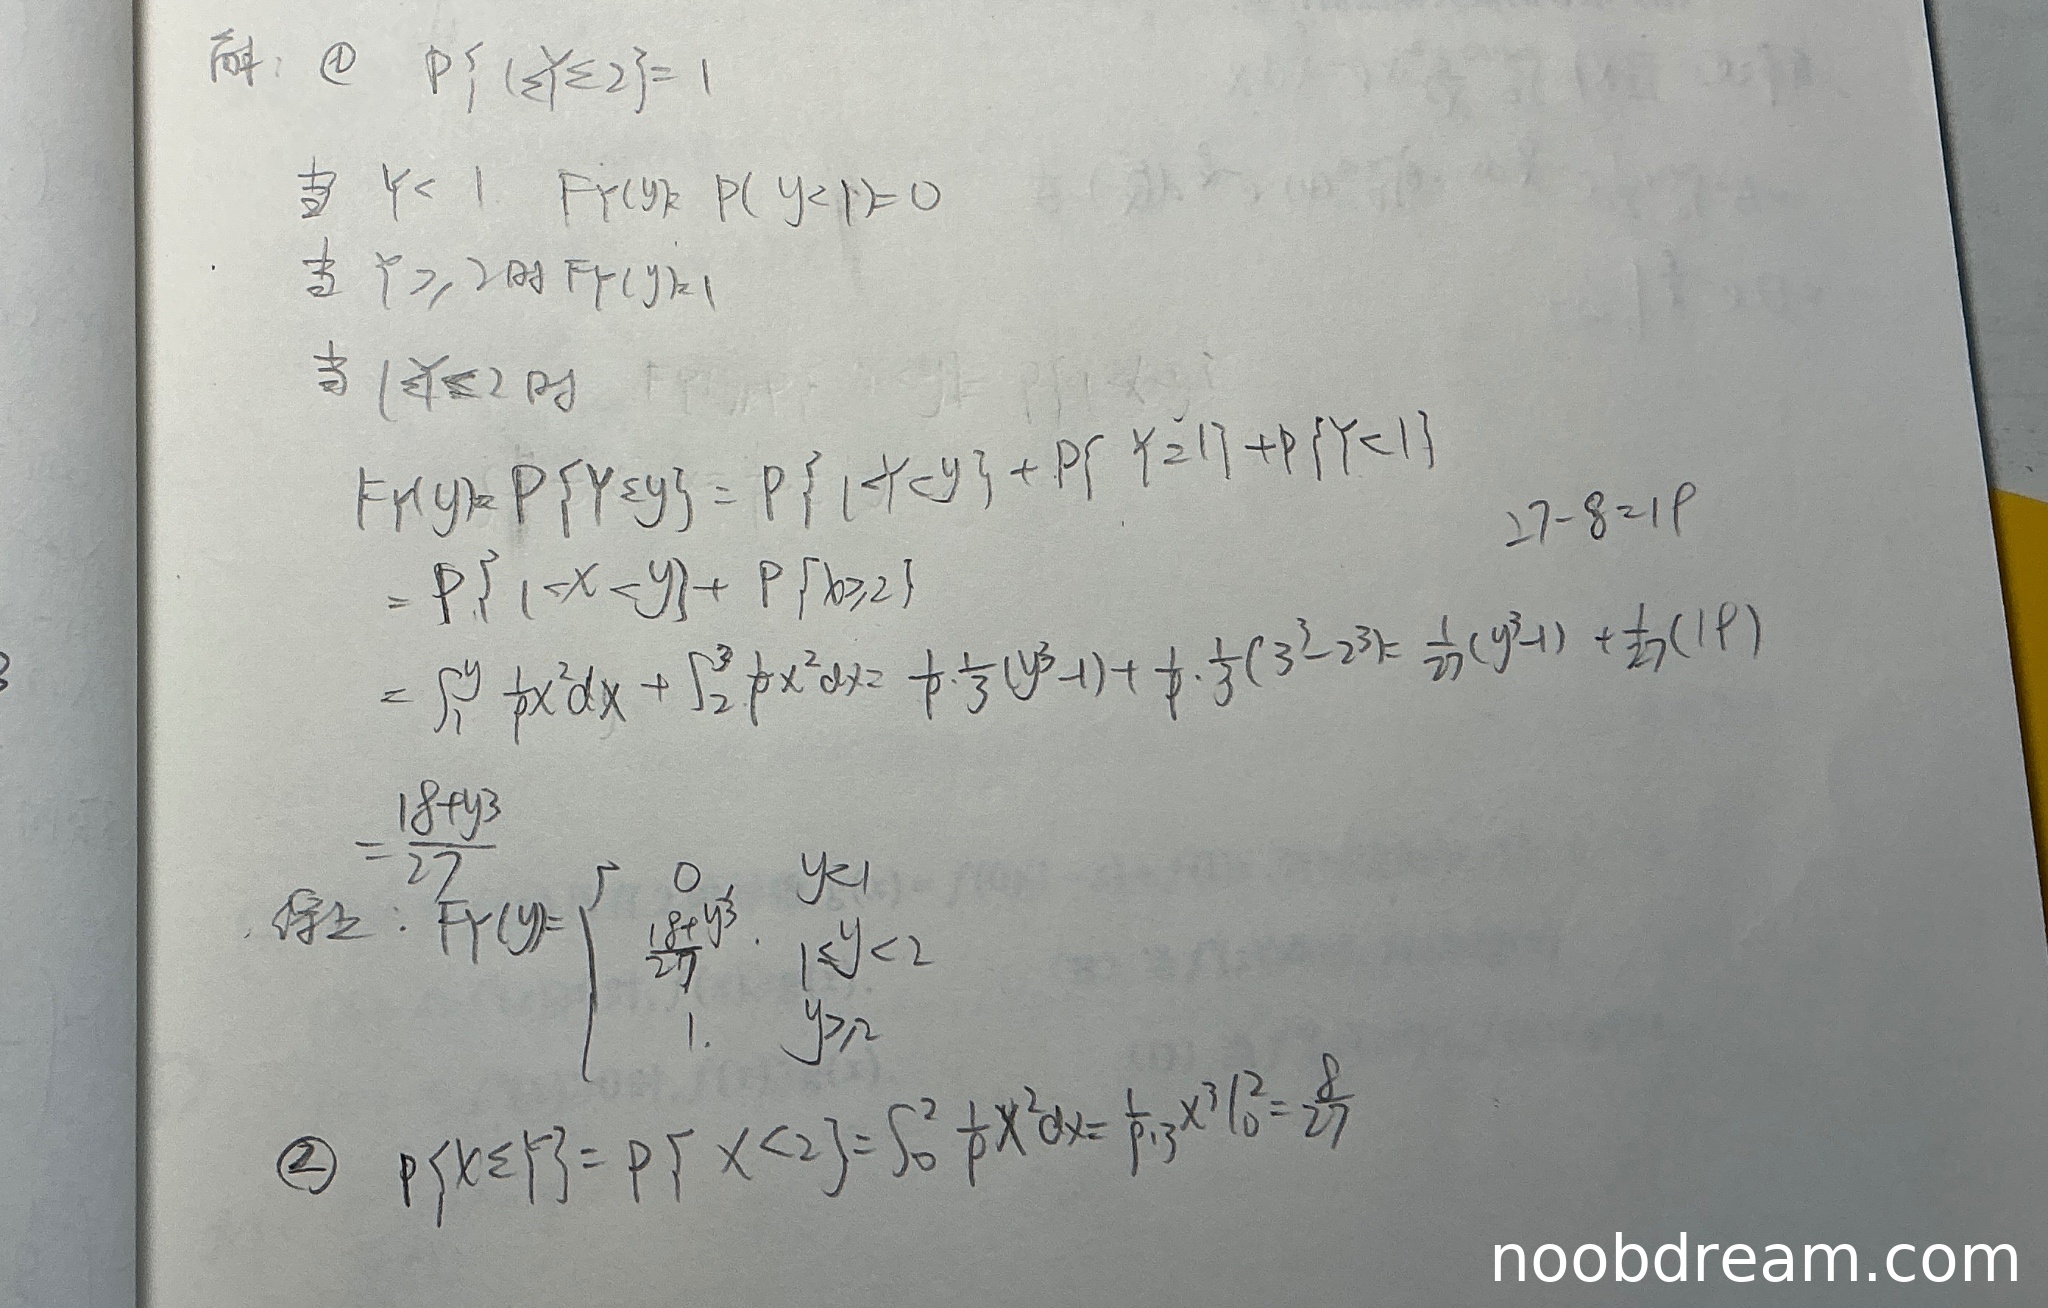 解: ① P{1≤Y≤2}=1
当 Y<1 FY(y)= P(y<1)=0
当 Y≥2时 FY(y)=1
当 1≤Y≤2时
FY(y)= P{Y≤y} = P{1<Y<y} + P{Y=1} + P{Y<1}
27-8=19
= P{1<X<y} + P{x≥2}
= ∫₁^y 1/9 x²dx + ∫₂³ 1/9 x²dx = 1/9·1/3(y³-1) + 1/9·1/3(3³-2³)= 1/27(y³-1) + 1/27(19)
= (18+y³)/27
综上: FY(y)= { 0, y<1
(18+y³)/27. 1≤y<2
1. y≥2
② P{X≤Y} = P{X<2} = ∫₀² 1/9 x²dx = 1/(9·3) x³|₀² = 8/27
noobdream.com